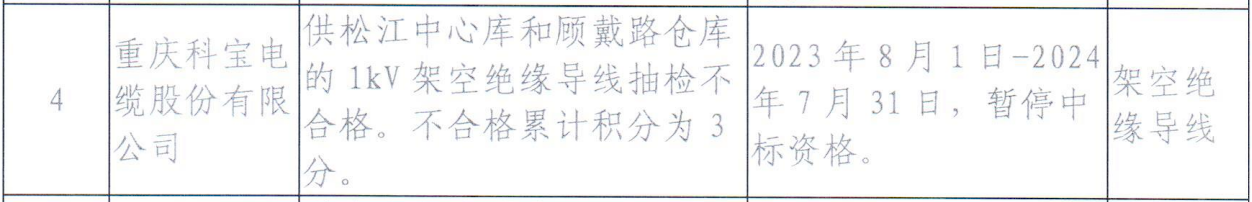 4
重庆科宝电
缆股份有限
公司
供松江中心库和顾戴路仓库
的 1kV 架空绝缘导线抽检不
合格。不合格累计积分为 3
分。
2023 年 8 月 1 日-2024
年 7 月 31 日，暂停中
标资格。
架空绝
缘导线